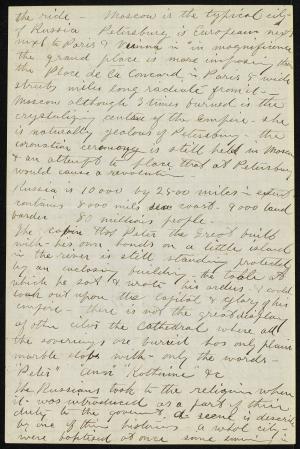 the ride - Moscow is the typical city
of Russia Petersburg is European next
next to Paris & Vienna in "in magnificence
the grand place is more imposing than
the Place de la Concord in Paris & wide
streets miles long radiate from it -
Moscow although 3 times burned is the
crystalizing centre of the Empire - she
is naturally jealous of Petersburg - the
coronation ceremony is still held in Moscow
& an attempt to place that at Petersburg
would cause a revolution
Russia is 10000 by 2500 miles in extent
contains 8000 miles sea coast. 9000 land
border 80 millions people -
The cabin that Peter the Great built
with his own hands on a little island
in the river is still standing protected
by an inclosing building - the table at
which he sat & wrote his orders & could
look out upon the capital & glory of his
empire - there is not the great display
of other cities the Cathedral where all
the sovereigns are buried has only plain
marble slabs with - only the words -
"Peter" "Katrine" &c
The Russians took to the religion when
it was introduced as a part of their
duty to the government, a scene is described
by one of their historians a whole city -
were baptised at once some